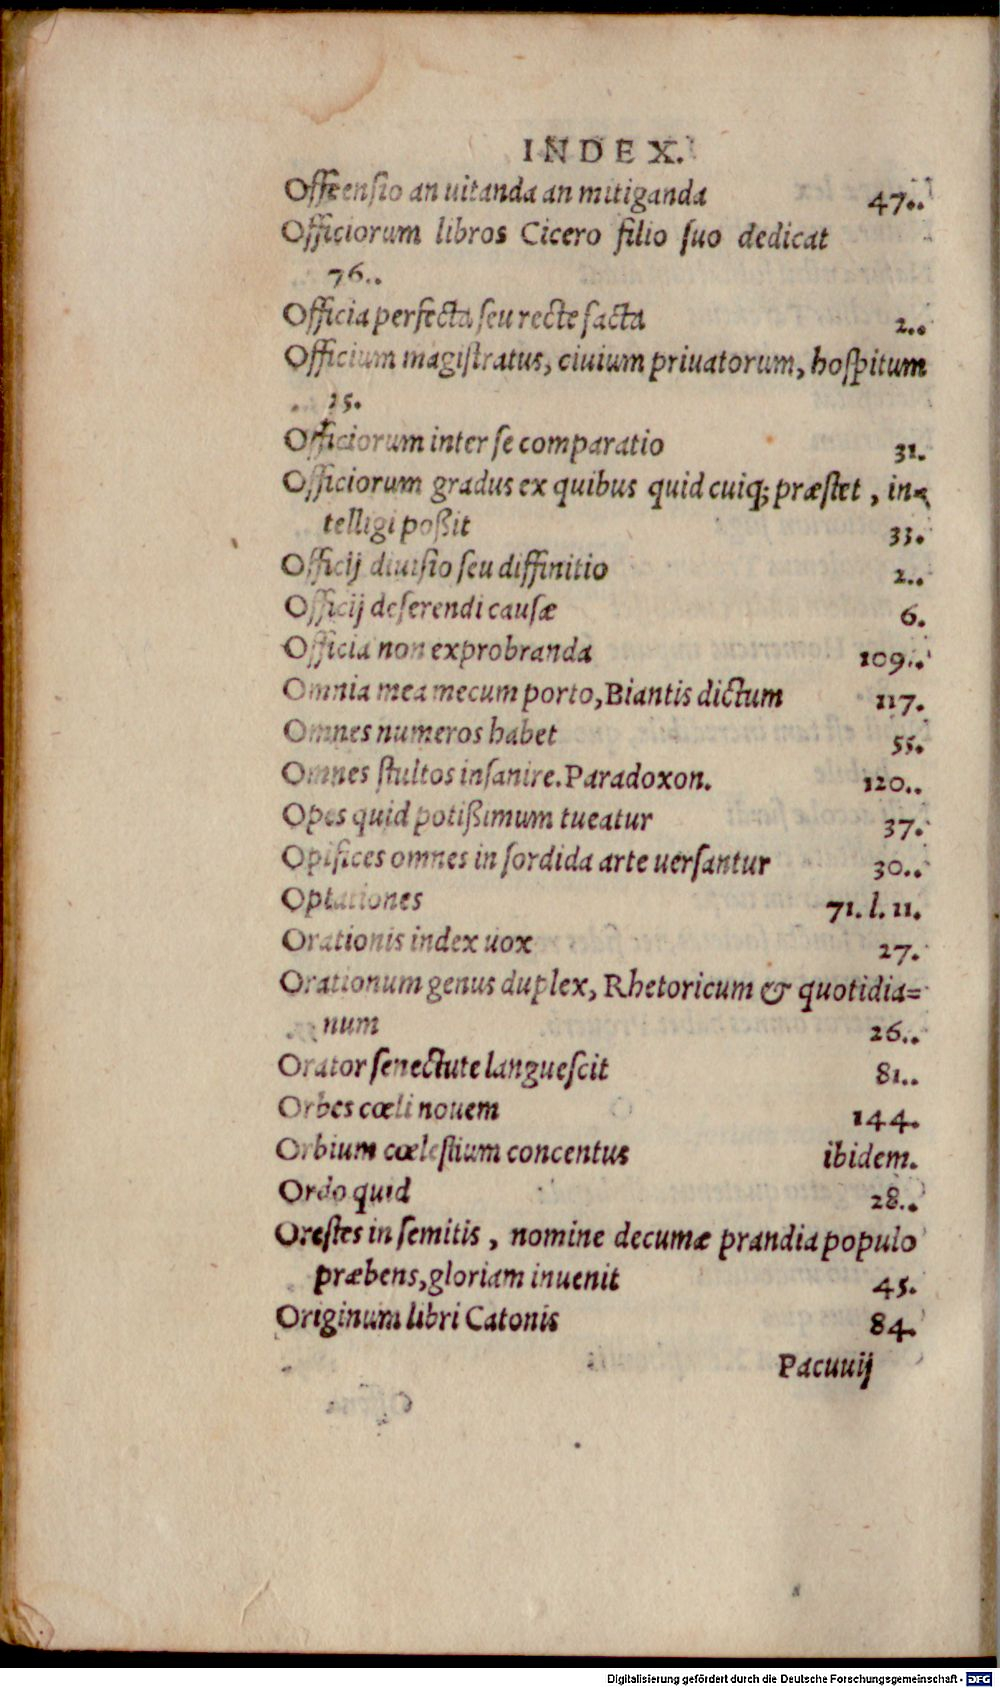 INDEX.
Offeensio an uitanda an mitiganda 47..
Officiorum libros Cicero filio suo dedicat
76..
Officia perfecta seu recte facta 2..
Officium magistratus, ciuium priuatorum, hospitum
25.
Officiorum inter se comparatio 31.
Officiorum gradus ex quibus quid cuiq; præstet, in=
telligi poßit 33.
Officij diuisio seu diffinitio 2..
Officij deserendi causæ 6.
Officia non exprobranda 109..
Omnia mea mecum porto, Biantis dictum 117.
Omnes numeros habet 55.
Omnes stultos insanire. Paradoxon. 120..
Opes quid potißimum tueatur 37.
Opifices omnes in sordida arte uersantur 30..
Optationes 71. l. 11.
Orationis index uox 27.
Orationum genus duplex, Rhetoricum & quotidia=
num 26..
Orator senectute languescit 81..
Orbes cœli nouem 144.
Orbium cœlestium concentus ibidem.
Ordo quid 28..
Orestes in semitis, nomine decumæ prandia populo
præbens, gloriam inuenit 45.
Originum libri Catonis 84.
Pacuuij
Digitalisierung gefördert durch die Deutsche Forschungsgemeinschaft - DFG